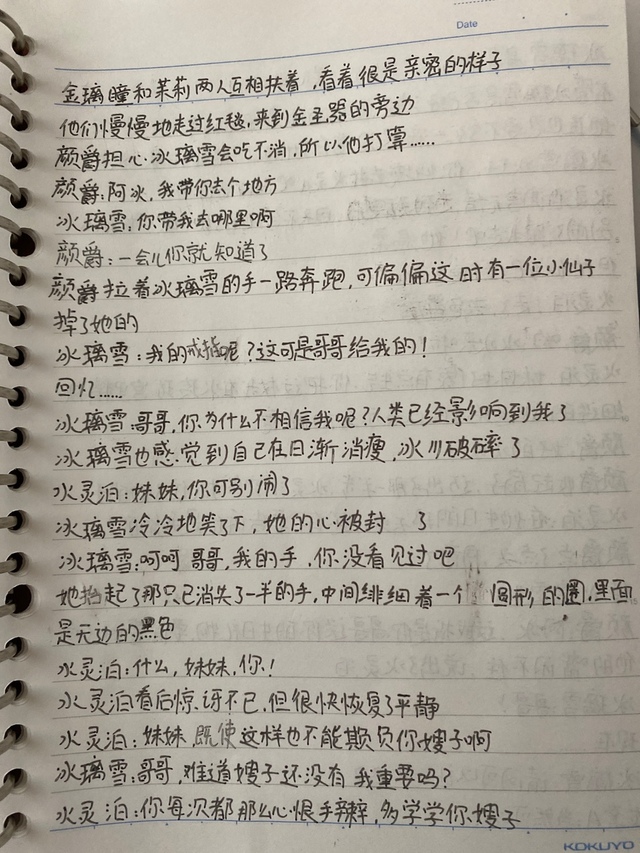 Date
金璃瞳和茉莉两人互相扶着,看着很是亲密的样子
他们慢慢地走过红毯,来到金王器的旁边
颜爵担心冰璃雪会吃不消,所以他打算……
颜爵:阿冰,我带你去个地方
冰璃雪:你带我去哪里啊
颜爵:一会儿你就知道了
颜爵拉着冰璃雪的手一路奔跑,可偏偏这时有一位小仙子
掉了她的
冰璃雪:我的戒指呢?这可是哥哥给我的!
回忆……
冰璃雪:哥哥,你为什么不相信我呢?人类已经影响到我了
冰璃雪也感觉到自己在日渐消瘦,冰川破碎了
水灵泊:妹妹,你可别闹了
冰璃雪冷冷地笑了下,她的心被封 了
冰璃雪:呵呵 哥哥,我的手,你没看见过吧
她抬起了那只已消失了一半的手,中间绯细着一个 圆形的圈,里面
是无边的黑色
水灵泊:什么,妹妹,你!
水灵泊看后惊讶不已,但很快恢复了平静
水灵泊:妹妹 既使这样也不能欺负你嫂子啊
冰璃雪:哥哥,难道嫂子还没有我重要吗?
水灵泊:你每次都那么心恨手辣,多学学你嫂子
KOKUYO